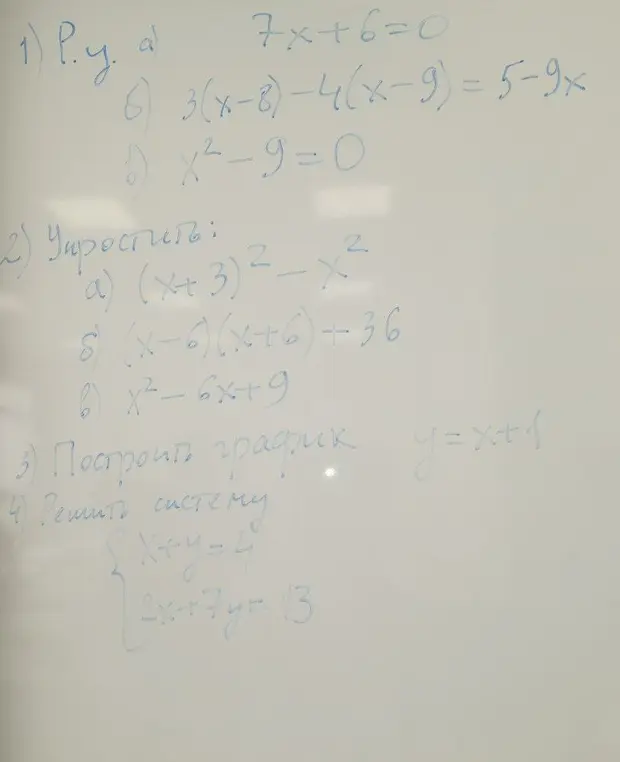 1) Р.у. а) 7x+6=0
б) 3(x-8)-4(x-9)=5-9x
в) x²-9=0
2) Упростить:
а) (x+3)²-x²
б) (x-6)(x+6)+36
в) x²-6x+9
3) Построить график y=x+1
4) Решить систему
x+y=4
2x+7y=13